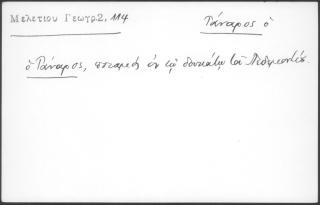 Μελετίου Γεωγρ. 2, 114
Τάναρος ὁ
ὁ Τάναρος, ποταμὸς ἐν τῷ δουκάτῳ τοῦ Πεδεμοντίου.